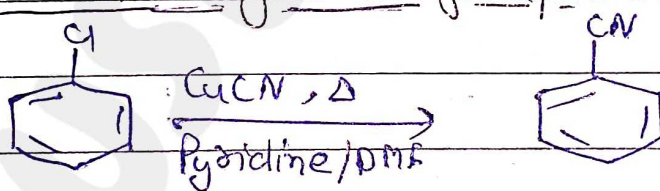 Cl
CN
CuCN, Δ
Pyridine/DMF